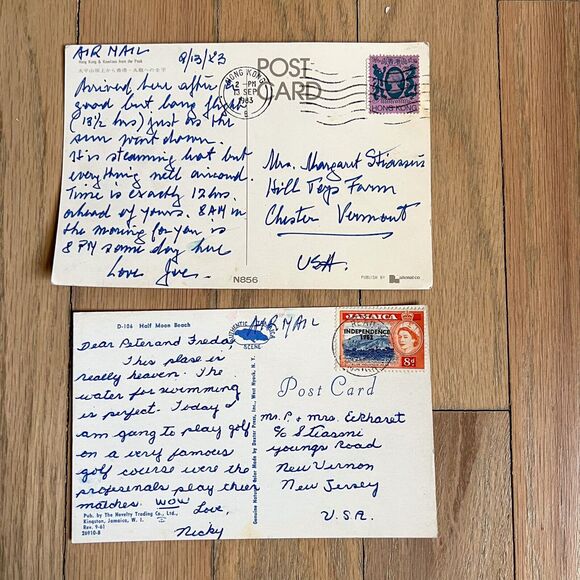 AIR MAIL
9/13/83
Hong Kong & Kowloon from the Peak
Arrived here after
good but long flight
(18½ hrs) just as the
sun went down.
It is steaming hot but
everything well airconed.
Time is exactly 12 hrs.
ahead of yours. 8AM in
the morning for you is
8 PM same day here
Love Joe.
POST
CARD
HONG KONG
2 - PM
13 SEP
1983
HONG KONG
Mrs. Margaret Stiassni
Hill Tops Farm
Chester Vermont
USA.
N856
PUBLISH BY National co
D-106 Half Moon Beach
Dear Peter and Freda,
This plase is
really heaven. The
water for swimming
is perfect. Today I
am gang to play golf
on a very famous
golf course were the
profesionals play their
matches. WOW
Love,
Nicky
Pub. by The Novelty Trading Co., Ltd.,
Kingston, Jamaica, W. I.
Rev. 9-61
26910-B
Genuine Natural Color Made by Dexter Press, Inc., West Nyack, N. Y.
AUTHENTIC
SCENE
AIR MAIL
JAMAICA
INDEPENDENCE
1962
8d
Post Card
Mr. P. + Mrs. Eckharet
c/o Stiassni
youngs Road
New Vernon
New Jersey
U.S.A.